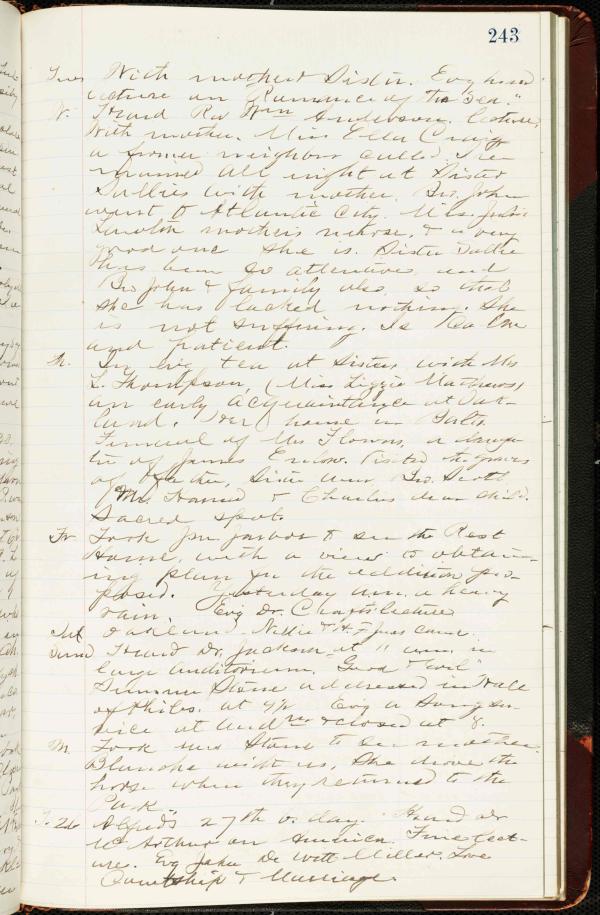 243
Tues With mother & Sister. Evg heard
lecture on "Romance of the Sea."
W. Heard Rev Wm Anderson lecture,
with mother. Miss Ella Craig
a former neighbor called. I re-
mained all night at Sister
Sallies with mother. Bro. John
went to Atlantic City. Mrs.
mothers nurse, & a very
good one she is. Sister Sallie
has been so attentive, and
Bro John & family also, so that
she has lacked nothing. She
is not suffering. Is so calm
and patient.
Th. In evg tea at Sisters with Mrs
L. Thompson, (Miss Lizzie Mathews)
an early acquaintance at Oak-
land. Her house in Balto.
Funeral of Mrs Flowers, a daugh-
ter of James Enlow. Visited the graves
of Father, Sister Bro. Scott
Mr. Howard & Charlie's dear child.
Sacred spot.
Fr Took to see the Rest
Home with a view to obtain-
ing plan for the addition pro-
posed. Yesterday a heavy
rain. Evg Dr. lecture
Sat Oakland. Nellie & came.
Sund Heard Dr. Jackson at 11 a.m. in
large auditorium. Good & Evil"
Summer addressed in Hall
of Philos. at 4 Evg a Song ser-
vice at & closed at 8.
M. Took Mrs Stone to see mother.
Blanche with us, She drove the
horse when they returned to the
Park
T. Alfred's 27th b. day. Heard Dr
McArthur on America. Fine lect-
ure. Evg John De Witt Miller. Love
Courtship & Marriage.